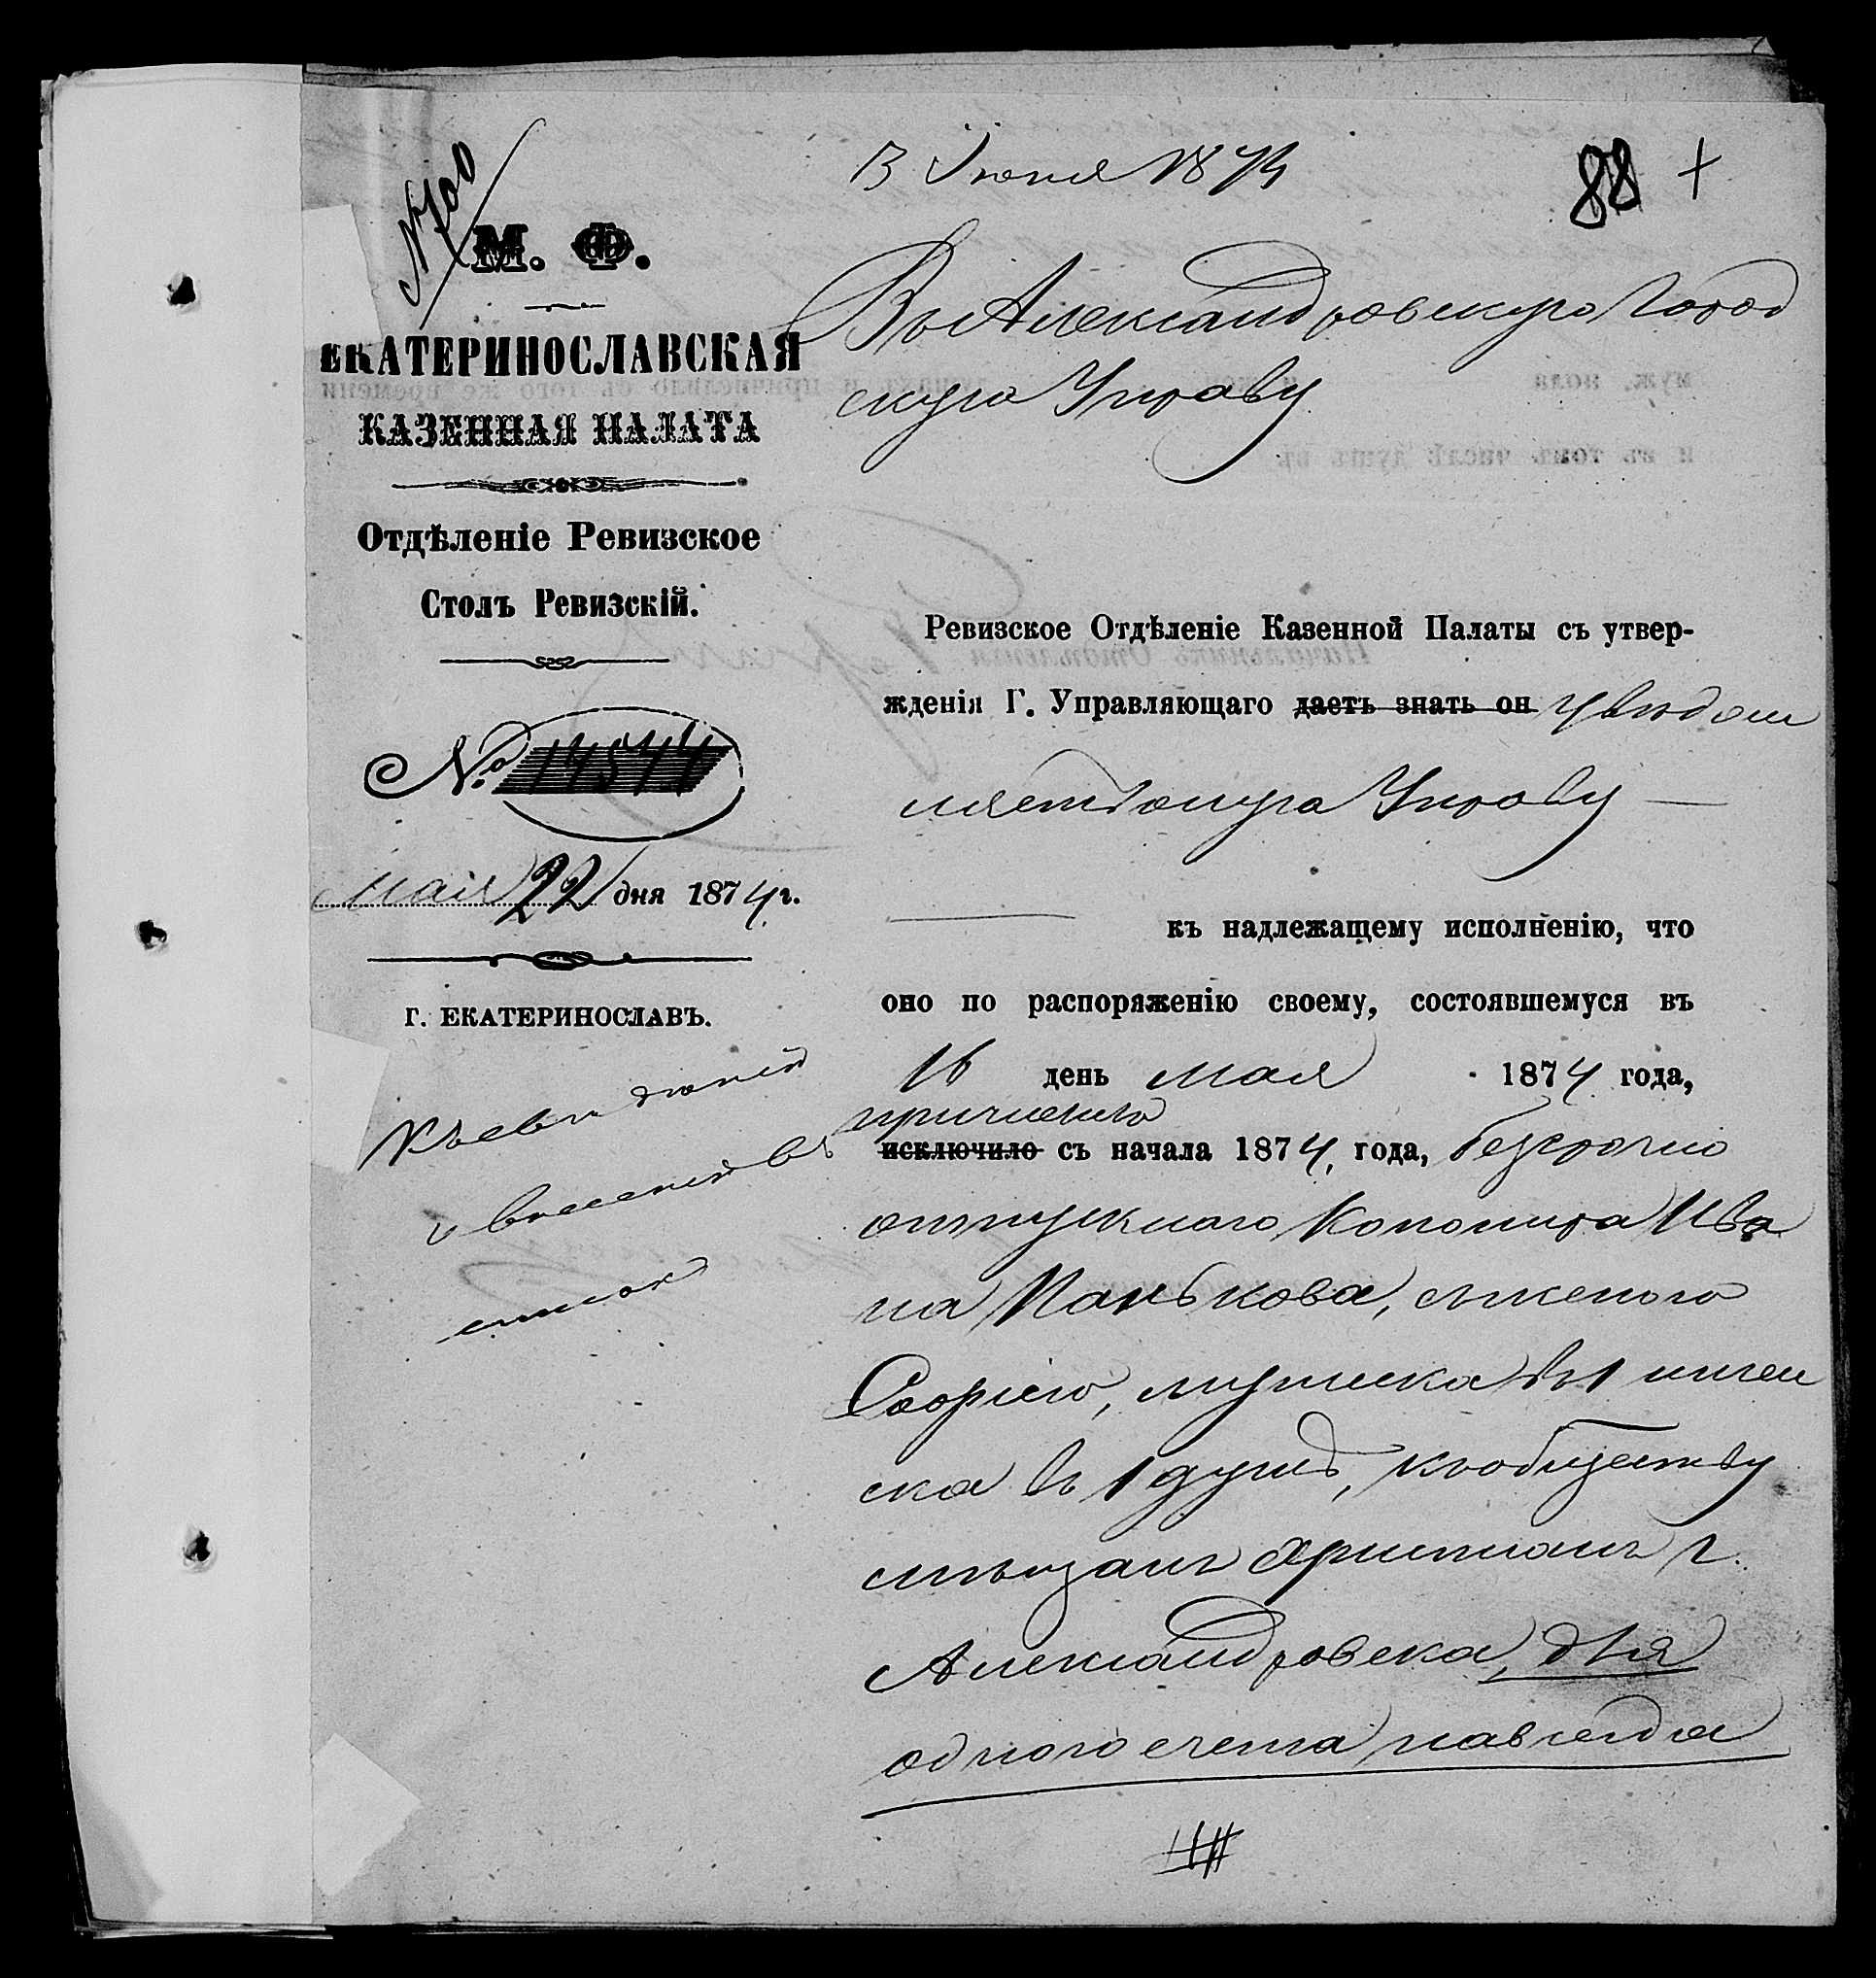 № 700
13 Июня 1874
88
М. Ф.
ЕКАТЕРИНОСЛАВСКАЯ
КАЗЕННАЯ ПАЛАТА
Отдѣленіе Ревизское
Столъ Ревизскій.
№ 14544
Мая 22 дня 1874 г.
Г. ЕКАТЕРИНОСЛАВЪ.
Къ свѣдѣнію
и внесенію въ
списокъ
Въ Александровскую Город
скую Управу
Ревизское Отдѣленіе Казенной Палаты съ утвер-
жденія Г. Управляющаго даетъ знать он увѣдом
ляетъ оную Управу
къ надлежащему исполненію, что
оно по распоряженію своему, состоявшемуся въ
16 день мая 1874 года,
причислило
исключило съ начала 1874 года, безсрочно
отпускного Канонира Ива
на Панькова, съ женою
Софіею, мужеска въ 1 и жен
ска въ 1 душѣ, къ обществу
мѣщанъ христіанъ г.
Александровска, для
одного счета навсегда